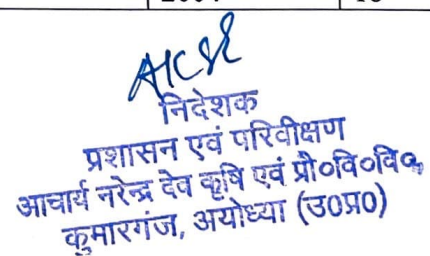 निदेशक
प्रशासन एवं परिवीक्षण
आचार्य नरेन्द्र देव कृषि एवं प्रौ०वि०वि०
कुमारगंज, अयोध्या (उ०प्र०)